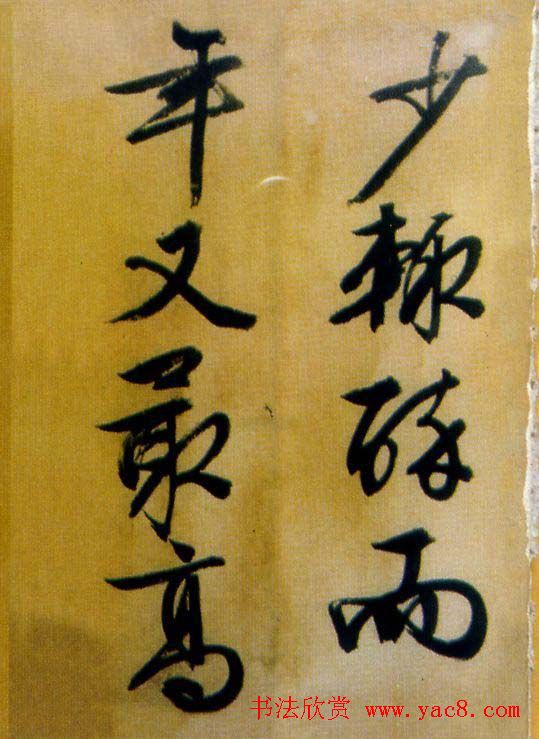 少輒醉而
年又最高
书法欣赏 www.yac8.com